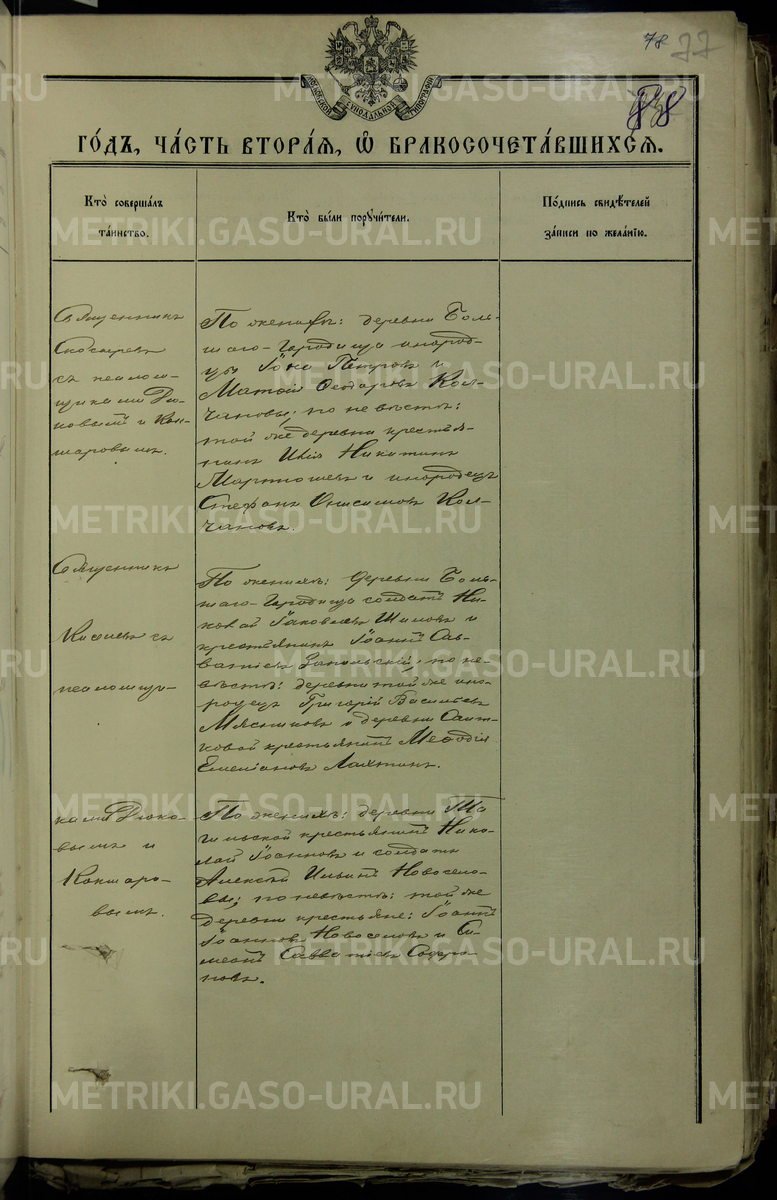 78 77
88
МОСКОВСКОЙ СѴНОДАЛЬНОЙ ТИПОГРАФІИ
ГО́ДЪ, ЧА́СТЬ ВТОРА́Я, Ѡ БРАКОСОЧЕТА́ВШИХСЯ.
Кто̀ соверша́лъ
та́инство.
Кто̀ бы́ли поручи́тели.
По́дпись свидѣ́телей
за́писи по жела́нію.
Священникъ
Скосыревъ
съ псалом-
щиками Дю-
ковымъ и Кок-
шаровымъ.
По женихѣ: деревни Боль-
шаго-Городища инород-
цы Іона Петровъ и
Матѳій Ѳедоровъ Кол-
чановы; по невѣстѣ:
той же деревни крестья-
нинъ Илія Никитинъ
Мартюшевъ и инородецъ
Стефанъ Онисимовъ Кол-
чановъ.
Священникъ
Киселевъ съ
псаломщи-
По женихѣ: деревни Боль-
шаго-Городища солдатъ Ни-
колай Іаковлевъ Шиловъ и
крестьянинъ Іоаннъ Сав-
ватіевъ Запольскій; по не-
вѣстѣ: деревни той же ино-
родецъ Григорій Васильевъ
Мясниковъ и деревни Сайт-
ковой крестьянинъ Меѳодій
Емеліановъ Лахтинъ.
ками Дюко-
вымъ и
Кокшаро-
вымъ.
По женихѣ: деревни Та-
гильской крестьянинъ Нико-
лай Іоанновъ и солдатъ
Алексѣй Ильинъ Новосело-
вы; по невѣстѣ: той же
деревни крестьяне: Іоаннъ
Іоанновъ Новоселовъ и Си-
меонъ Савватіевъ Софро-
новъ.
METRIKI.GASO-URAL.RU